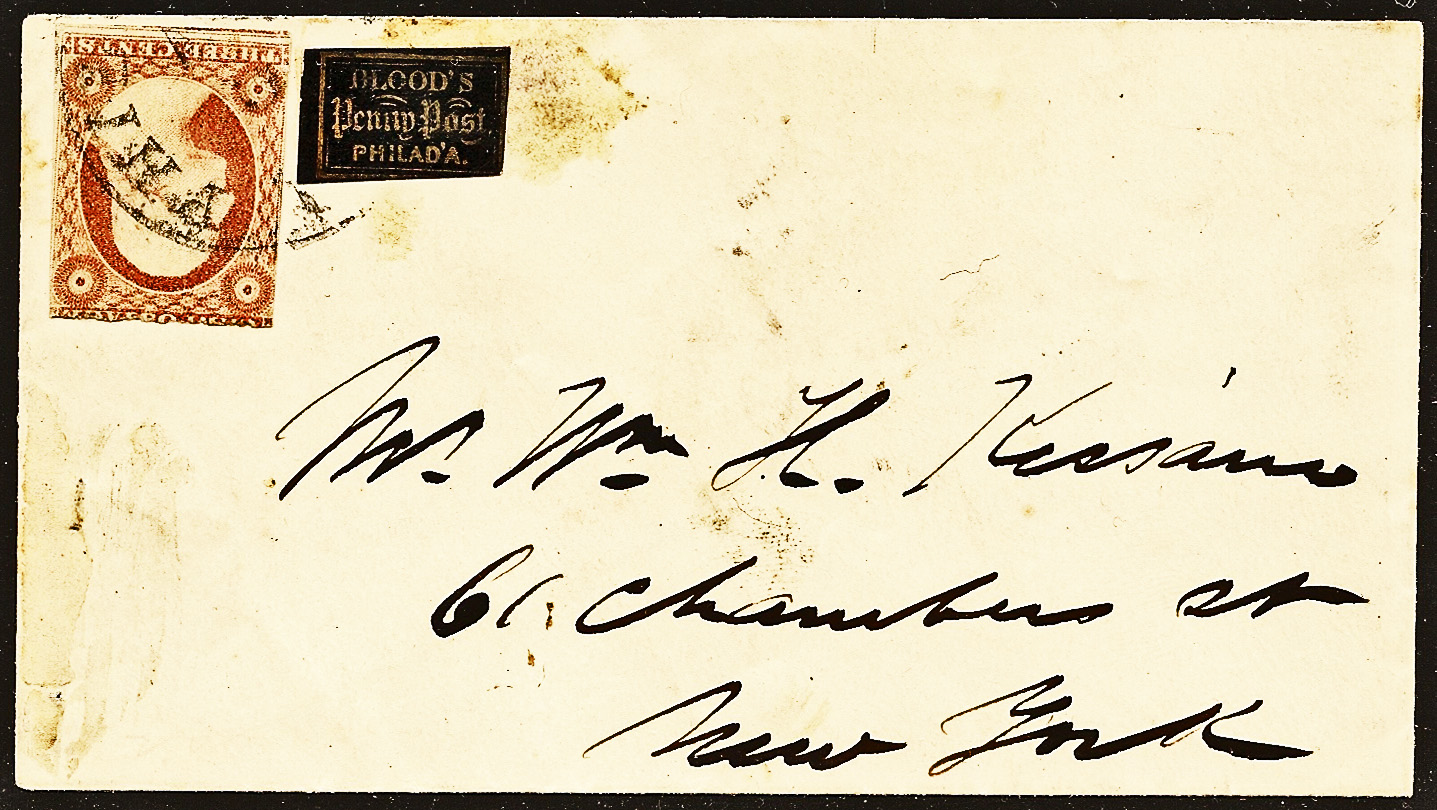 THREE CENTS
BLOOD'S
Penny Post
PHILAD'A.
Mr. Wm. H.
61 Chambers st
New York